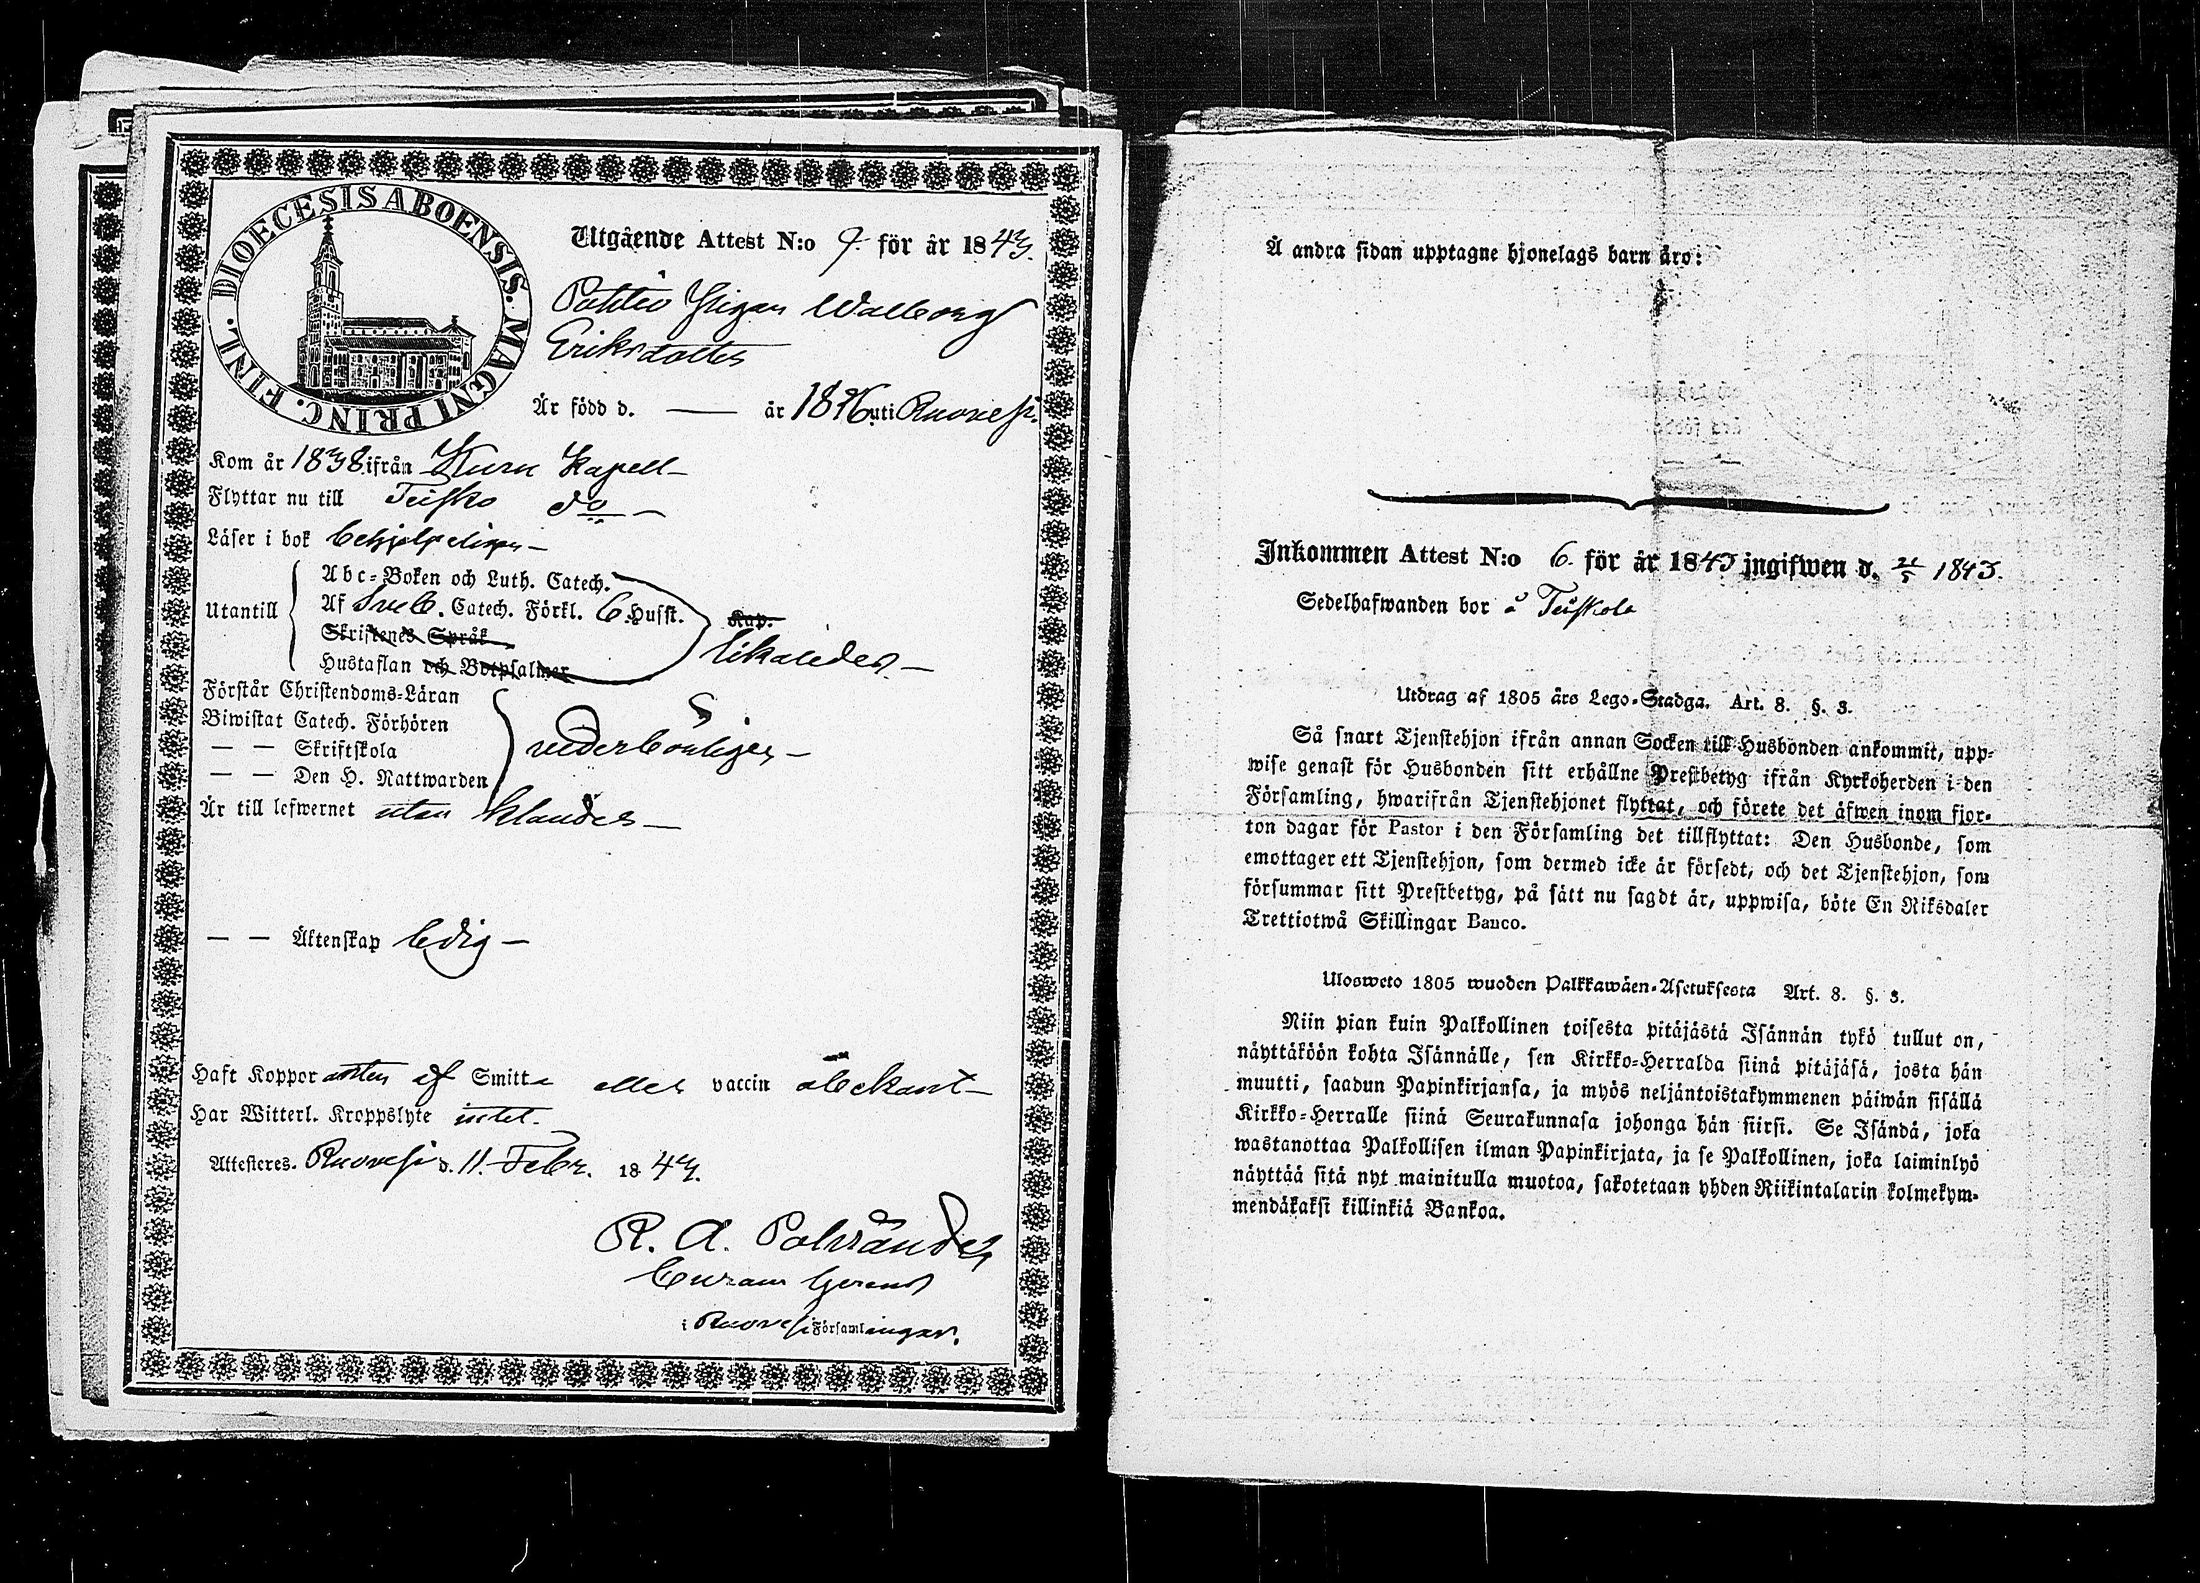 DIOECESIS ABOENSIS. MAGNI PRINC. FINL.
Utgående Attest N:o 9. för år 1843.
Pigan Walborg
Eriksdotter
Är född d. — år 1826 uti Ruovesi.
Kom år 1838 ifrån Kuru Kapell —
Flyttar nu till Teisko do —
Läser i bok behjelpeligen —
Utantill
Abc-Boken och Luth. Catech.
Af Sveb. Catech. Förkl. Husst. Kap.
Skriftenes Språk
Hustaflan och Botpsalmer
likaledes —
Förstår Christendoms-Läran
Biwistat Catech. Förhören
— — Skriftskola
— — Den H. Nattwarden
vederbörligen —
Är till lefwernet utan klander —
— — Äktenskap ledig —
Haft Koppor antin af Smitta eller vaccin obekant —
Har Witterl. Kroppslyte intet.
Attesteres. Ruovesi d. 11. Febr. 1843.
R. A. Polviander
Curam Gerens
i Ruovesi Församlingar.
Å andra sidan upptagne hjonelags barn äro:
Inkommen Attest N:o 6. för år 1843 ingifwen d. 21/5 1843.
Sedelhafwanden bor å Teiskola
Utdrag af 1805 års Lego-Stadga. Art. 8. §. 3.
Så snart Tjenstehjon ifrån annan Socken till Husbonden ankommit, upp-
wise genast för Husbonden sitt erhållne Prestbetyg ifrån Kyrkoherden i den
Församling, hwarifrån Tjenstehjonet flyttat, och förete det äfwen inom fjor-
ton dagar för Pastor i den Församling det tillflyttat: Den Husbonde, som
emottager ett Tjenstehjon, som dermed icke är försedt, och det Tjenstehjon, som
försummar sitt Prestbetyg, på sätt nu sagdt är, uppwisa, böte En Riksdaler
Trettiotwå Skillingar Banco.
Ulosweto 1805 wuoden Palkkawäen-Asetuksesta Art. 8. §. 3.
Niin pian kuin Palkollinen toisesta pitäjästä Isännän tykö tullut on,
näyttäköön kohta Isännälle, sen Kirkko-Herralda siinä pitäjäsä, josta hän
muutti, saadun Papinkirjansa, ja myös neljäntoistakymmenen päiwän sisällä
Kirkko-Herralle siinä Seurakunnasa johonga hän siirsi. Se Isändä, joka
wastanottaa Palkollisen ilman Papinkirjata, ja se Palkollinen, joka laiminlyö
näyttää sitä nyt mainitulla muotoa, sakotetaan yhden Riikintalarin kolmekym-
mendäkaksi killinkiä Bankoa.